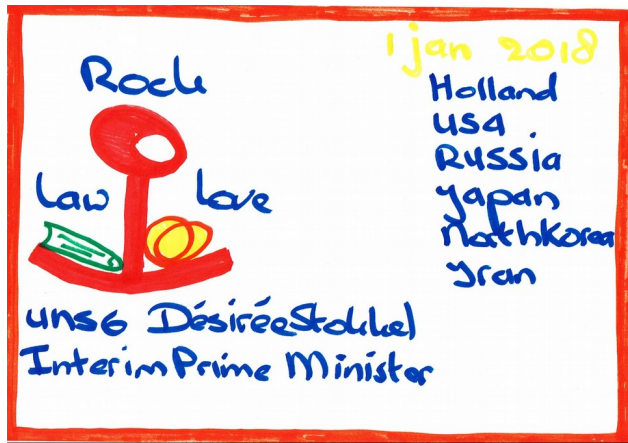 1 jan 2018
Rock
Law Love
Holland
USA
Russia
Yapan
NothKorea
Yran
UNSG DésiréeStokkel
Interim Prime Minister